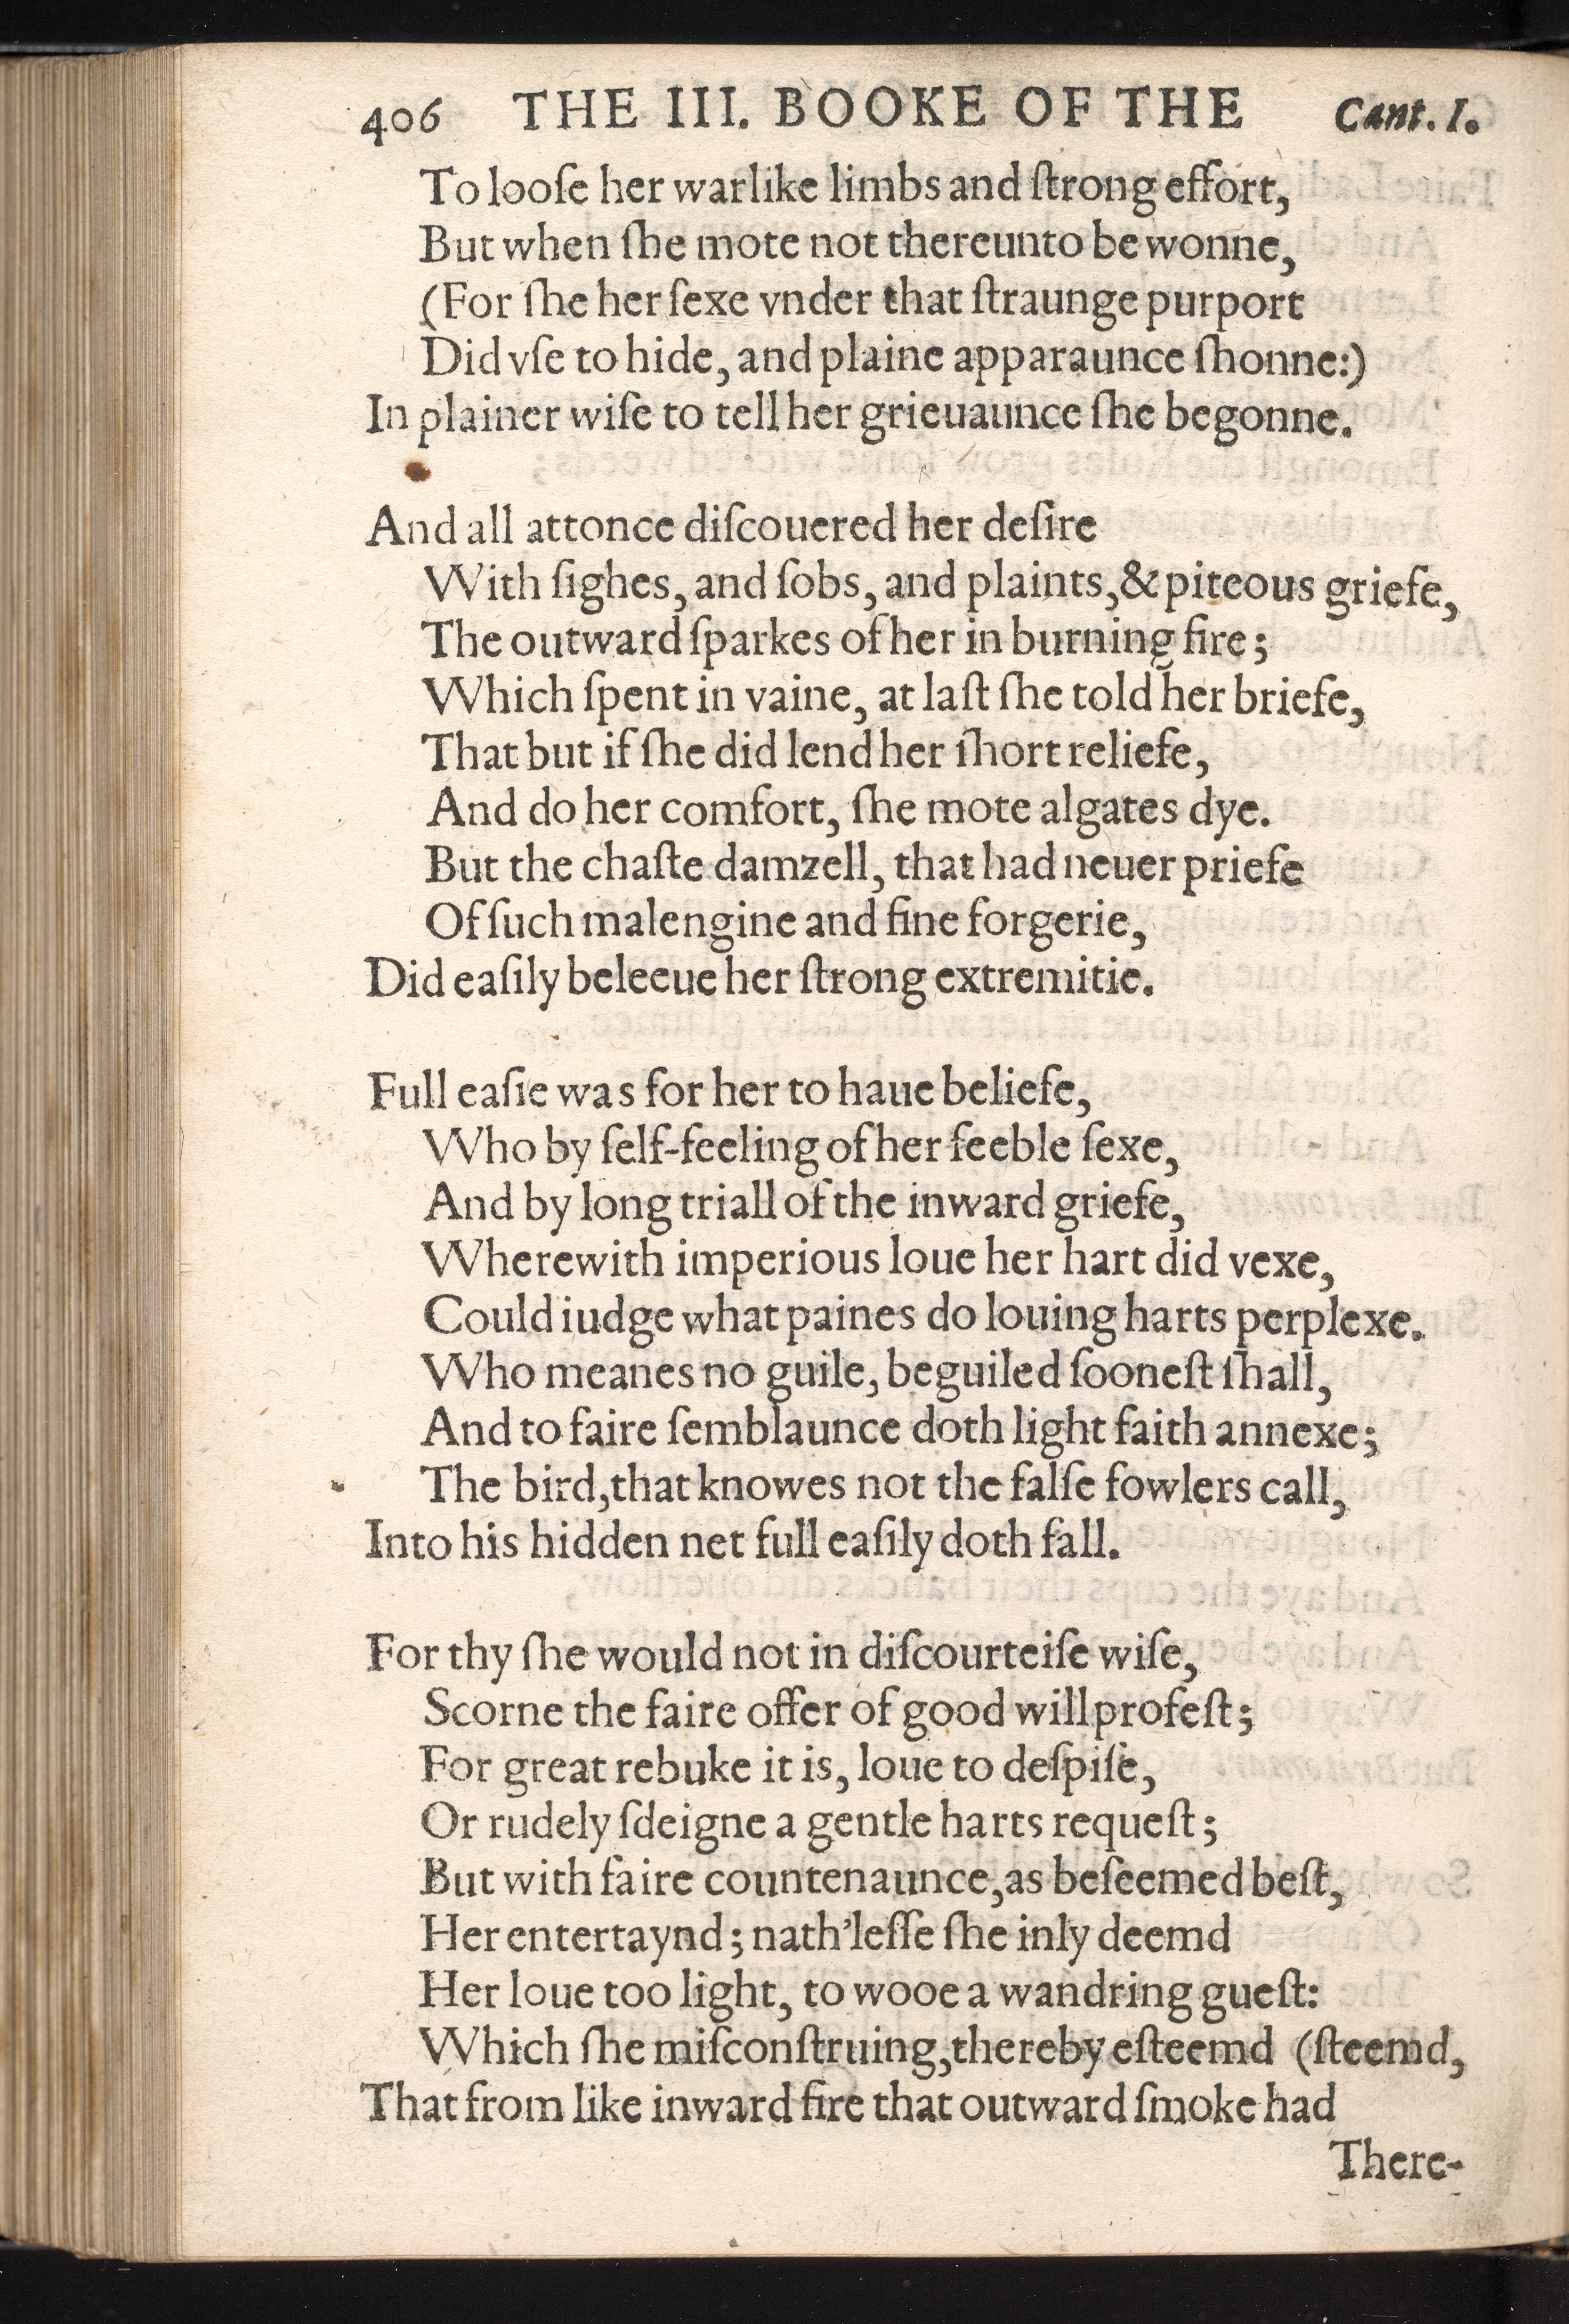 406 THE III. BOOKE OF THE Cant. I.
To looſe her warlike limbs and ſtrong effort,
But when ſhe mote not thereunto be wonne,
(For ſhe her ſexe vnder that ſtraunge purport
Did vſe to hide, and plaine apparaunce ſhonne:)
In plainer wiſe to tell her grieuaunce ſhe begonne.

And all attonce diſcouered her deſire
With ſighes, and ſobs, and plaints, & piteous griefe,
The outward ſparkes of her in burning fire;
Which ſpent in vaine, at laſt ſhe told her briefe,
That but if ſhe did lend her ſhort reliefe,
And do her comfort, ſhe mote algates dye.
But the chaſte damzell, that had neuer priefe
Of ſuch malengine and fine forgerie,
Did eaſily beleeue her ſtrong extremitie.

Full eaſie was for her to haue beliefe,
Who by ſelf-feeling of her feeble ſexe,
And by long triall of the inward griefe,
Wherewith imperious loue her hart did vexe,
Could iudge what paines do louing harts perplexe.
Who meanes no guile, beguiled ſooneſt ſhall,
And to faire ſemblaunce doth light faith annexe;
The bird, that knowes not the falſe fowlers call,
Into his hidden net full eaſily doth fall.

For thy ſhe would not in diſcourteiſe wiſe,
Scorne the faire offer of good will profeſt;
For great rebuke it is, loue to deſpiſe,
Or rudely ſdeigne a gentle harts requeſt;
But with faire countenaunce, as beſeemed beſt,
Her entertaynd; nath'leſſe ſhe inly deemd
Her loue too light, to wooe a wandring gueſt:
Which ſhe miſconſtruing, thereby eſteemd (ſteemd,
That from like inward fire that outward ſmoke had
There-